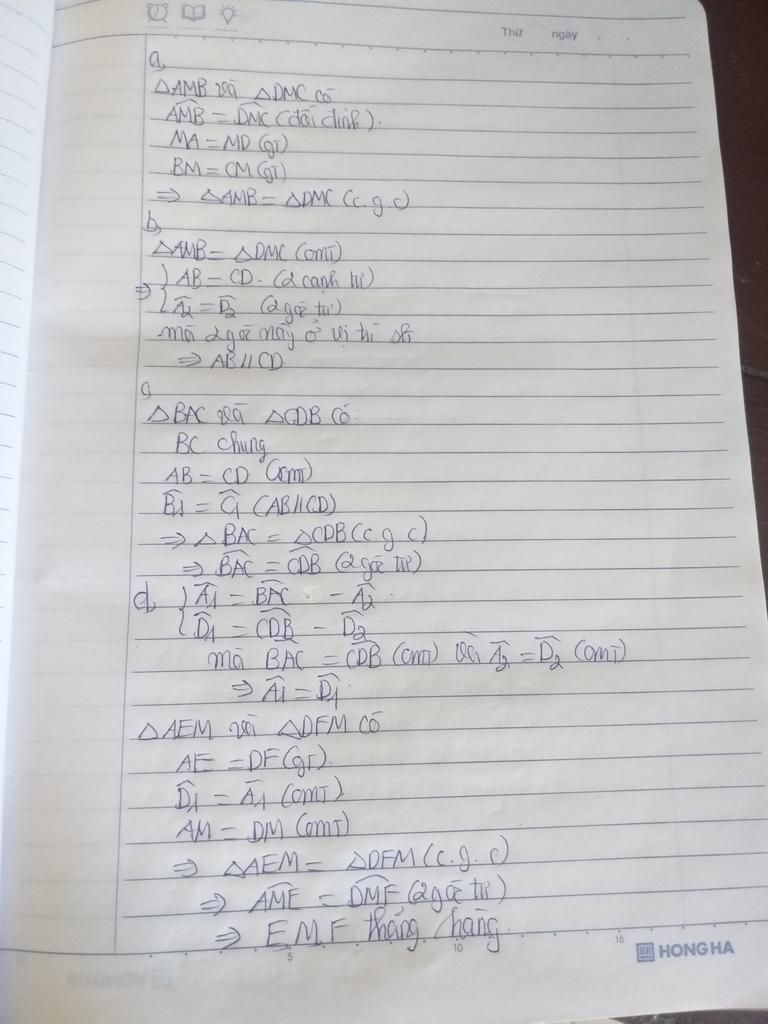 Thứ ngày
a,
△AMB và △DMC có
∠AMB = ∠DMC (đối đỉnh).
MA = MD (gT)
BM = CM (gT)
⇒ △AMB = △DMC (c.g.c)
b,
△AMB = △DMC (cmT)
⇒ { AB = CD. (2 cạnh tư)
Â2 = D̂2 (2 góc tư)
mà 2 góc này ở vị trí slt
⇒ AB // CD
c,
△BAC và △CDB có:
BC chung
AB = CD (cmT)
B̂1 = Ĉ1 (AB // CD)
⇒ △BAC = △CDB (c.g.c)
⇒ ∠BAC = ∠CDB (2 góc tư)
d, { Â1 = ∠BAC - Â2
D̂1 = ∠CDB - D̂2
mà ∠BAC = ∠CDB (cmT) và Â2 = D̂2 (cmT)
⇒ Â1 = D̂1
△AEM và △DFM có
AE = DF (gT).
D̂1 = Â1 (cmT)
AM = DM (cmT)
⇒ △AEM = △DFM (c.g.c)
⇒ ∠AME = ∠DMF (2 góc tư)
⇒ E, M, F thẳng hàng.
5 10 15
HONG HA